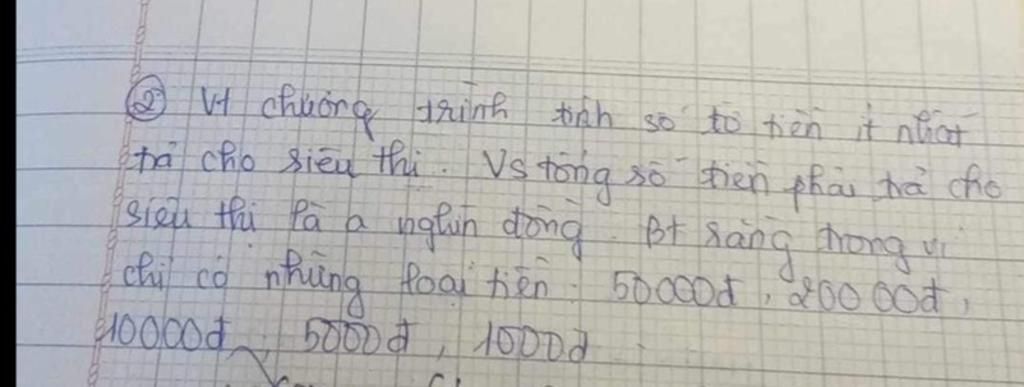 ② Vt chương trình tính số tờ tiền ít nhất
trả cho siêu thị. Vs tổng số tiền phải trả cho
siêu thị là a nghìn đồng. Bt rằng trong ví
chỉ có những loại tiền: 50000đ, 20000đ,
10000đ, 5000đ, 1000đ